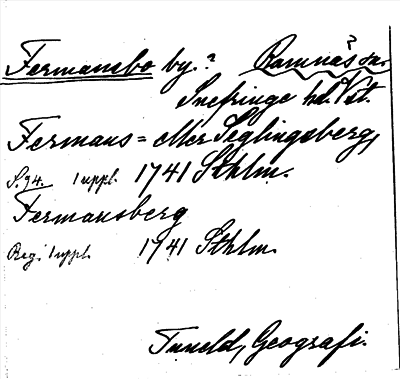 Fermansbo by. ? Ramnäs sn.
Snefringe hd. Vstm.
Fermans= eller Seglingsberg,
S. 94. 1 uppl. 1741 Sthlm.
Fermansberg
Reg. 1 uppl. 1741 Sthlm.
Tuneld, Geografi.